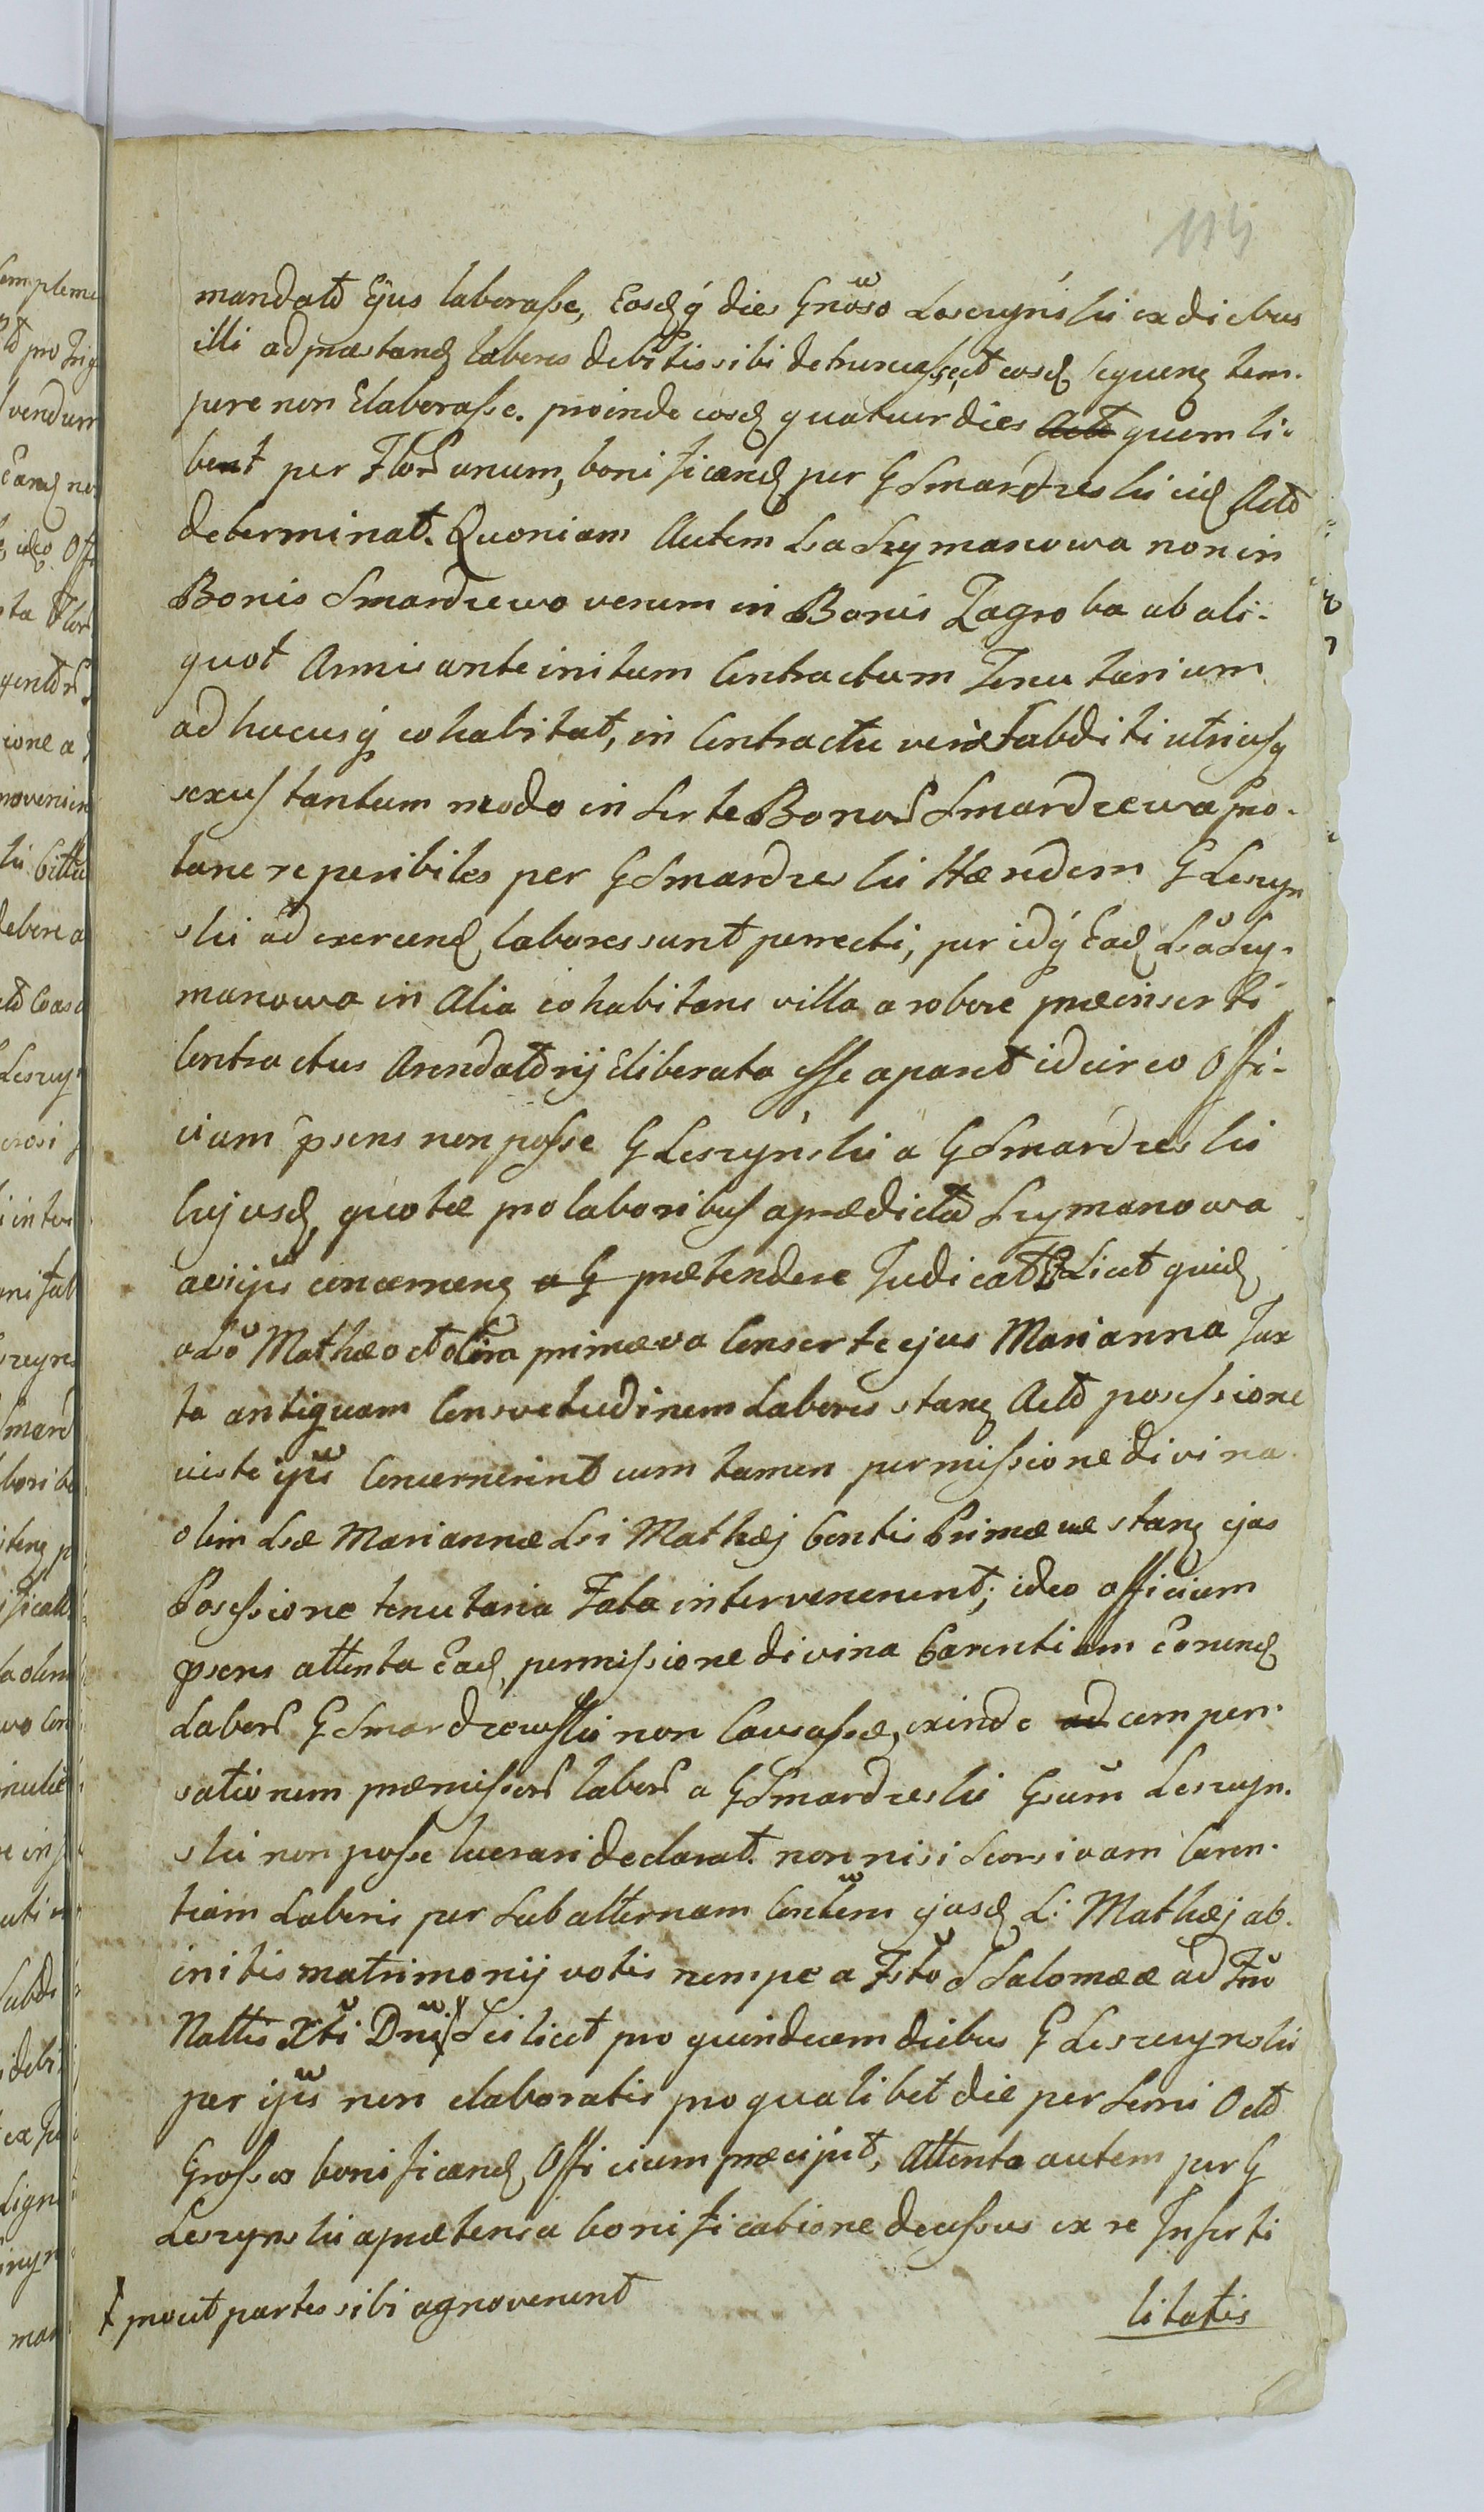 115
mandato Ejus laborasse, Eosdq dies Gnoso Loszczyński ex diebus
illi ad præstand labores debitis sibi detruncasse, et eosd sequen tem-
pore non Elaborasse. proinde eosd quatuor dies quemli-
bent per Flor unum, bonificand per G Smardzeski eid Acto
determinat. Quoniam Autem La Szymanowa non in
Bonis Smardzewo verum in Bonis Zagroba ab ali-
quot Annis ante initum Contractum Tenutarium
ad hucusq cohabitat, in Contractu vero Sabditi utriusq
sexus tantum modo in Sorte Bonor Smardzewo pro-
tunc reperibiles per G Smardzeski Hæredem G Leszczyn
ski ad exercend labores sunt porrecti, per idq Ead La Szy-
manowa in Alia cohabitans villa a robore præinserti
Contractus Arendatorij Eliberata esse aparet idcirco Offi-
cium psens non posse G Leszczyński a G Smardzeski
hujusd quotæ pro laboribus a prædicta Szymanowa
acsijus concernen a G prætendere Judicat Licet quid
a Lo Mathæo et olim primæva Consorte ejus Marianna Jux
ta antiquam Consvetudinem Labores stan Acto possessione
uiste ipis Concernerint cum tamen permissione divina
olim Lsæ Mariannæ Lsi Mathæj Contis Primæuæ stan ejas
Possessione tenutaria Fata intervenerunt; ideo officium
psens attenta Ead permissione divina Carentiam Eorund
Labor G Smardzewski non Causasse, exinde ad compen-
sationem præmissor labor a G Smardzeski Gsum Leszczyn-
ski non posse lucrari declarat. non nisi Seorsivam Caren-
tiam Laboris per Subalternam Contem ejusd L: Mathæj ab
initis matrimonij votis nempe a Fsto S Salomeæ ad Fm
Nattis Xti Dni Scilicet pro quindecem diebus G Leszczynski
per ijus non elaboratis pro qualibet die per Semi Octo
Grossos bonificand Officium præcipit, Attenta autem per G
Leszczynski aprætensa bonificatione decessus ex re Inserti
prout partes sibi agnoverunt
litatis